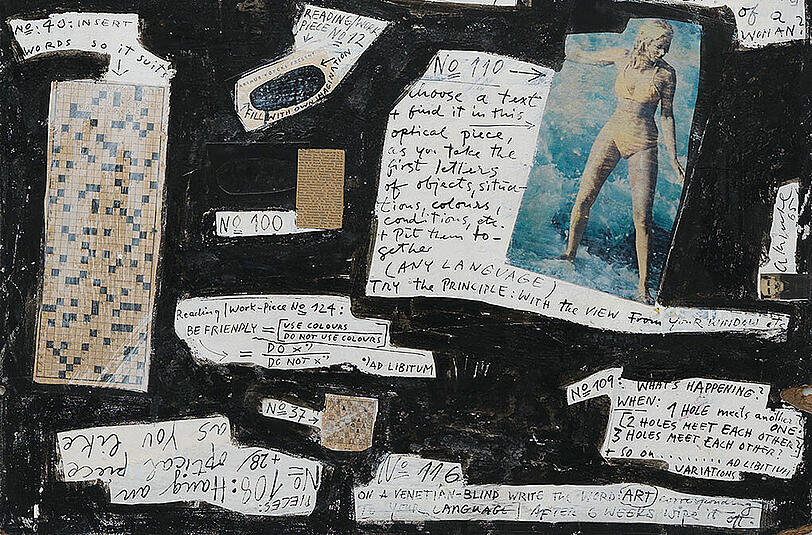 No: 40: INSERT
WORDS SO IT SUIT
READING/WORK
PIECE No 12
FILL WITH OWN IMAGINATION
of a
WOMAN
No 110 →
choose a text
+ find it in this
optical piece,
as you take the
first letters
of objects, situa-
tions, colours,
conditions, etc.
+ Pit them to-
gether
(ANY LANGUAGE)
TRY the PRINCIPLE: WITH the VIEW from YOUR WINDOW etc
No 100
Reading/Work-Piece No 124:
BE FRIENDLY = USE COLOURS
DO NOT USE COLOURS
= DO x)
DO NOT x)
x) AD LIBITUM
No 37 →
No 109: WHAT'S HAPPENING?
WHEN: 1 HOLE meets another ONE?
2 HOLES MEET EACH OTHER?
3 HOLES MEET EACH OTHER?
+ so on ........ AD LIBITUM
VARIATIONS
PIECES:
No 108: Hang an
+28/ optical piece
as you like
No 116
ON A VENETIAN-BLIND WRITE the WORD: (ART) corresponding
to YOUR LANGUAGE / AFTER 6 WEEKS WIPE it off.